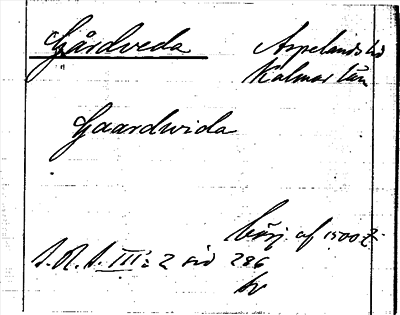 Gårdveda Aspelands hd
Kalmar län
Gaardwida
börj. af 1500 t.
S.R.S. III: 2 sid 286
br